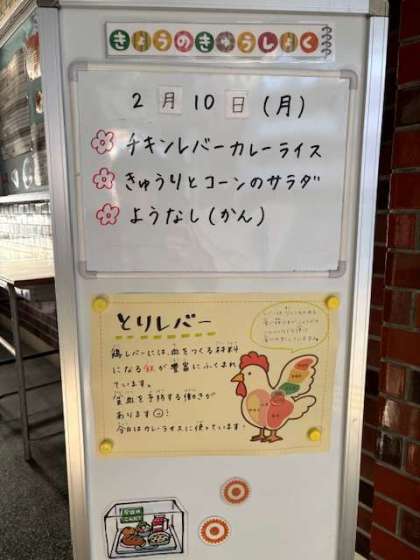 きょうのきゅうしょく
2月10日(月)
チキンレバーカレーライス
きゅうりとコーンのサラダ
ようなし(かん)
とりレバー
鶏レバーには、血をつくる材料
になる鉄が豊富にふくまれ
ています。
貧血を予防する働きが
あります!
今日はカレーライスに使っています!